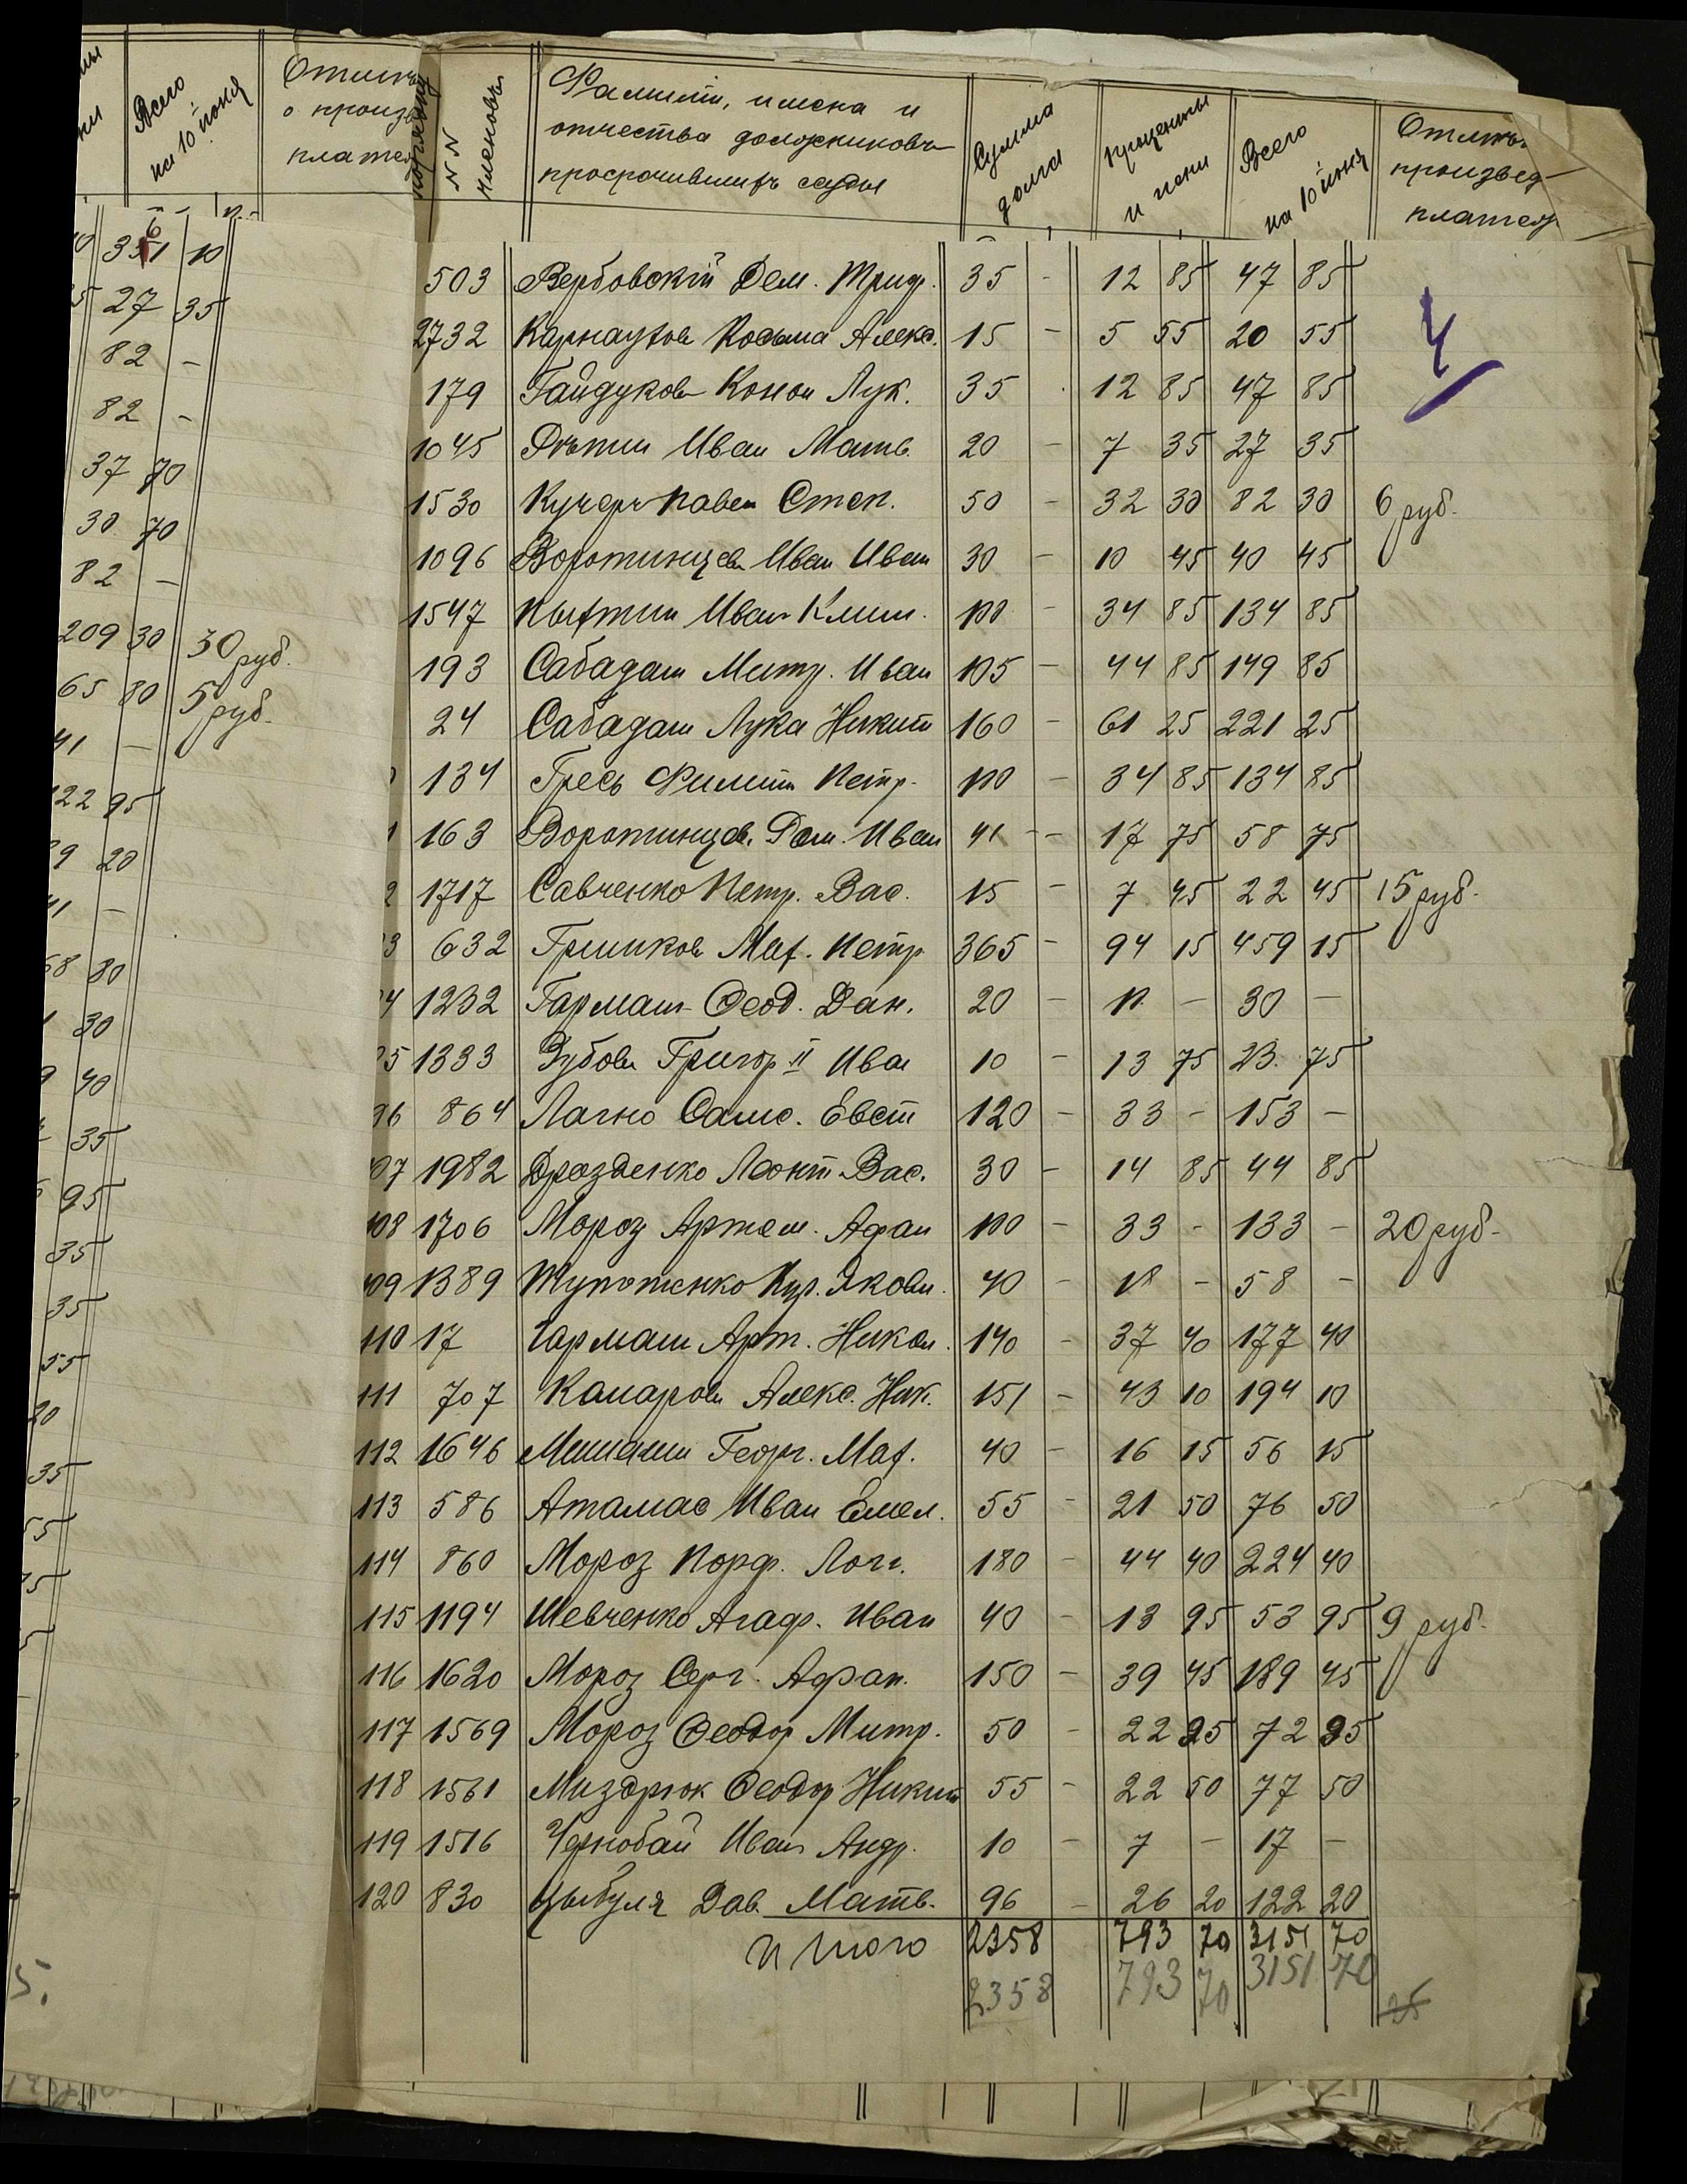 Всего
на 10 июня
Отмѣтк
о произв
платеж
6
351 10
27 35
82 -
82 -
37 70
30 70
82 -
209 30 30 руб.
65 80 5 руб.
41 -
122 95
9 20
41 -
68 80
30
40
35
95
35
35
55
20
35
55
5.
по порядку
NN членовъ
Фамиліи, имена и отчества должниковъ просрочившихъ ссуды
Сумма долга
проценты и пени
Всего на 10 июня
Отмѣтк произвед платеж
503 Вербовскій Дем. Триф. 35 - 12 85 47 85
4
2732 Карнаухов Козьма Алекс. 15 - 5 55 20 55
179 Гайдуковъ Конон Лук. 35 12 85 47 85
1045 Дѣтин Иван Матв. 20 - 7 35 27 35
1530 Кучеръ Павел Степ. 50 - 32 30 82 30 6 руб.
1096 Воротинцев Иван Иван 30 - 10 45 40 45
1547 Пыхтин Иван Клим. 100 - 34 85 134 85
193 Сабадаш Митр. Иван 105 - 44 85 149 85
24 Сабадаш Лука Никит 160 - 61 25 221 25
134 Гресь Филипп Петр. 100 - 34 85 134 85
1 163 Воротинцев. Иван 41 - 17 75 58 75
2 1717 Савченко Петр. Вас. 15 - 7 45 22 45 15 руб.
3 632 Гришков Мах. Петр 365 - 94 15 459 15
04 1232 Гармаш Ѳеод. Дан. 20 - 10 - 30 -
05 1333 Зубовъ Григор II Иван 10 - 13 75 23 75
06 864 Лагно Самс. Евст 120 - 33 - 153 -
107 1982 Дрозденко Леонт Вас. 30 - 14 85 44 85
108 1706 Мороз Артем. Афан 100 - 33 - 133 - 20 руб.
109 1389 Яковл. 40 - 18 - 58 -
110 17 Гармаш Арт. Никол. 140 - 37 40 177 40
111 707 Комаровъ Алекс. Ник. 151 - 43 10 194 10
112 1646 Мишанин Георг. Мах. 40 - 16 15 56 15
113 586 Атамас Иван Емел. 55 - 21 50 76 50
114 860 Мороз Порф. Логг. 180 - 44 40 224 40
115 1194 Шевченко Агаф. Иван 40 - 13 95 53 95 9 руб.
116 1620 Мороз Серг. Афан. 150 - 39 45 189 45
117 1569 Мороз Ѳеодор Митр. 50 - 22 25 72 25
118 1561 Миздрюк Ѳеодор Никит 55 - 22 50 77 50
119 1516 Чернобай Иван Андр. 10 - 7 - 17 -
120 830 Цыбуля Дав. Матв. 96 - 26 20 122 20
Итого 2358 793 70 3151 70
2358 793 70 3151 70
25